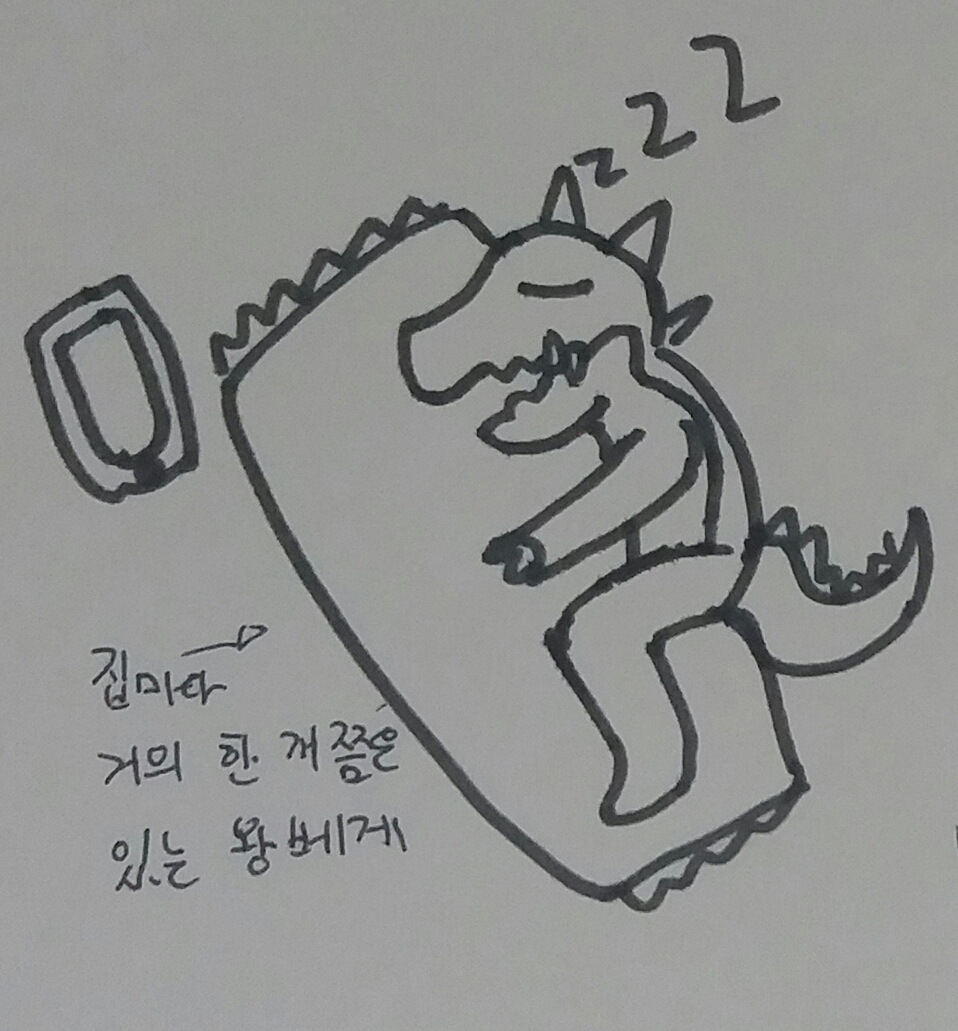 z z Z
집마다
거의 한 개쯤은
있는 왕베게